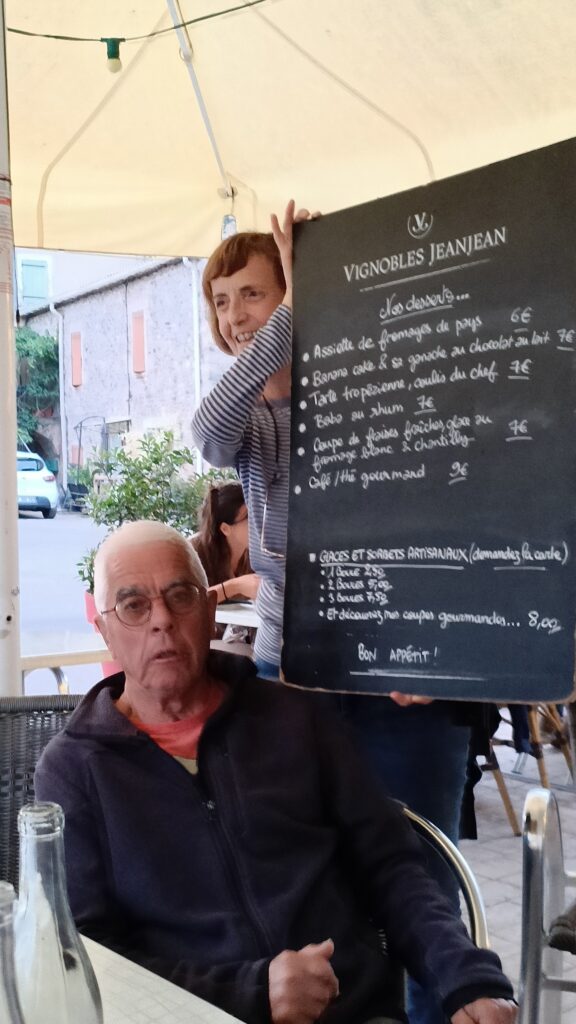 V
VIGNOBLES JEANJEAN
Nos desserts...
• Assiette de fromages de pays 6€
• Banana cake & sa ganache au chocolat au lait 7€
• Tarte tropézienne, coulis du chef 7€
• Baba au rhum 7€
• Coupe de fraises fraîches, glace au
fromage blanc & chantilly 7€
• Café/thé gourmand 9€
GLACES ET SORBETS ARTISANAUX (demandez la carte)
• 1 BOULE 2,50
• 2 BOULES 5,00
• 3 BOULES 7,50
• Et découvrez nos coupes gourmandes... 8,00
BON APPÉTIT !